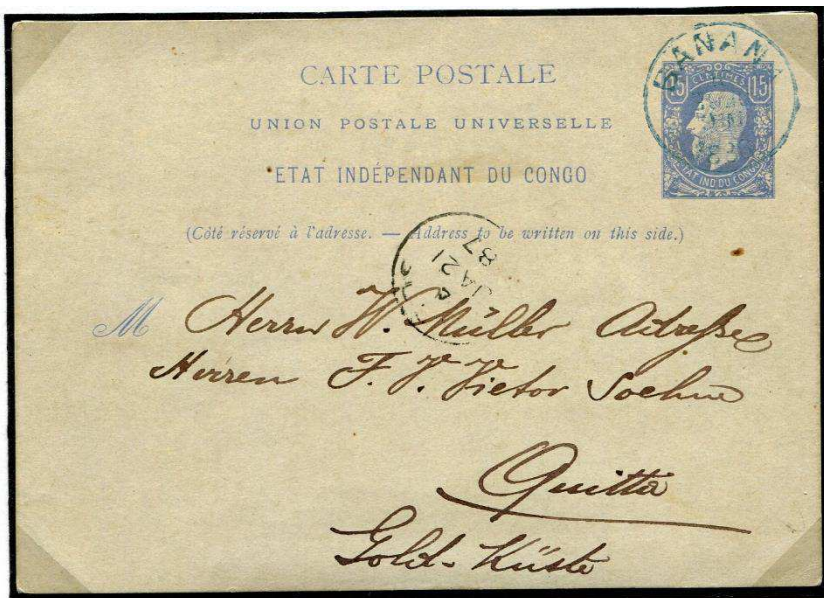 CARTE POSTALE
UNION POSTALE UNIVERSELLE
ETAT INDÉPENDANT DU CONGO
(Côté réservé à l'adresse. — Address to be written on this side.)
BANANA
15 15
ETAT IND DU CONGO
JA 21
87
M Herrn W. Müller Adresse
Herren F. V. Vietor Soehne
Quitta
Gold-Küste